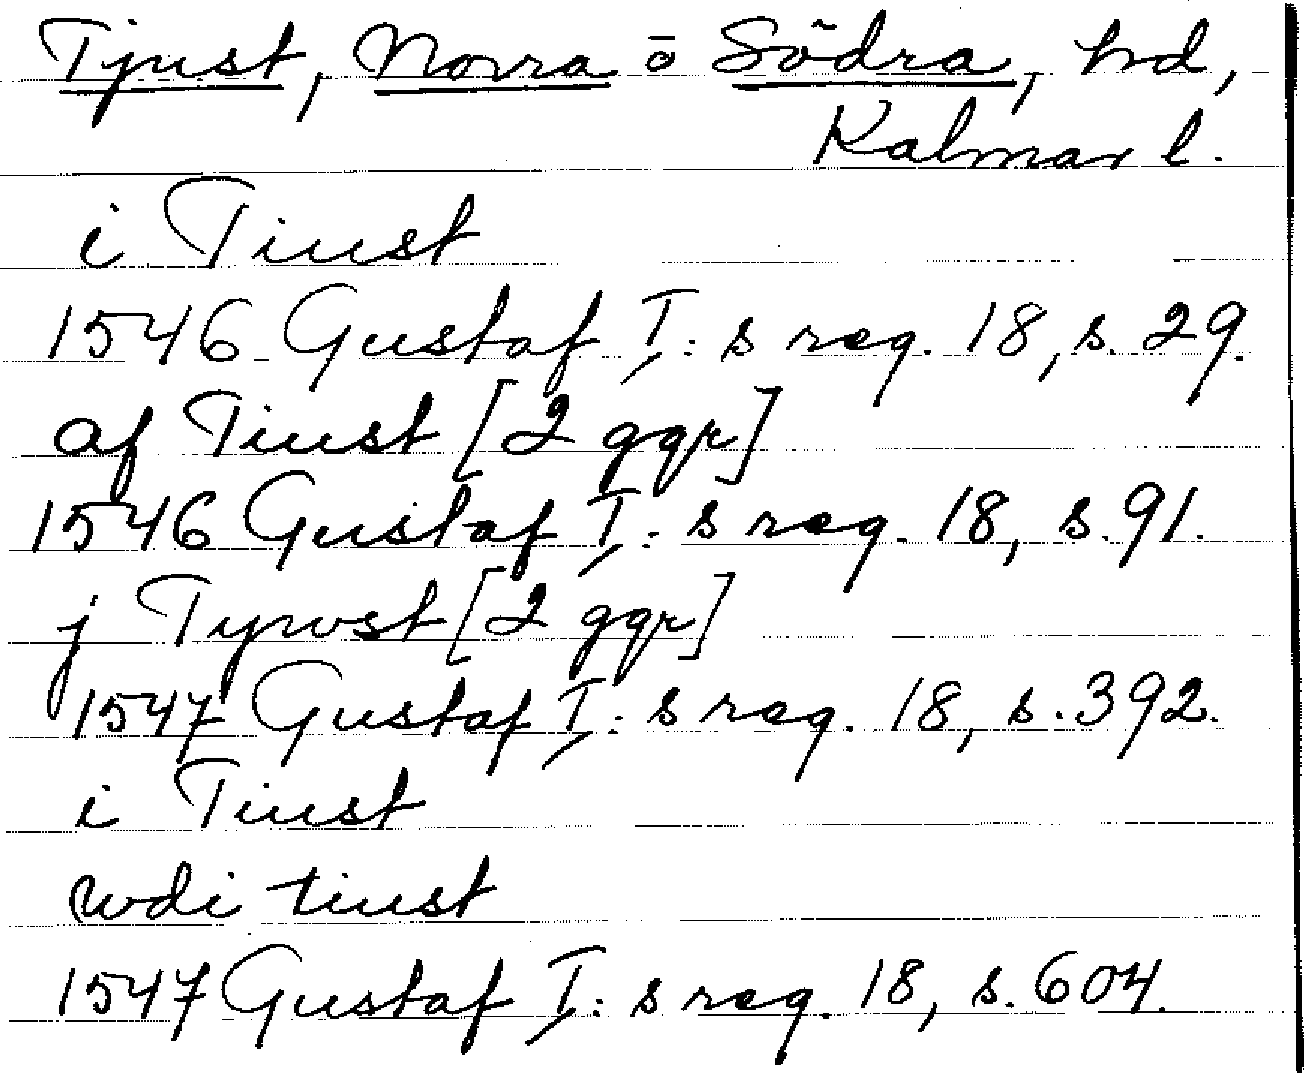 Tjust, Norra o Södra, hd,
Kalmar l.
i Tiust
1546 Gustaf I:s reg. 18, s. 29.
af Tiust [2 ggr]
1546 Gustaf I:s reg. 18, s. 91.
j Tywst [2 ggr]
1547 Gustaf I:s reg. 18, s. 392.
i Tiust
wdi tiust
1547 Gustaf I:s reg. 18, s. 604.